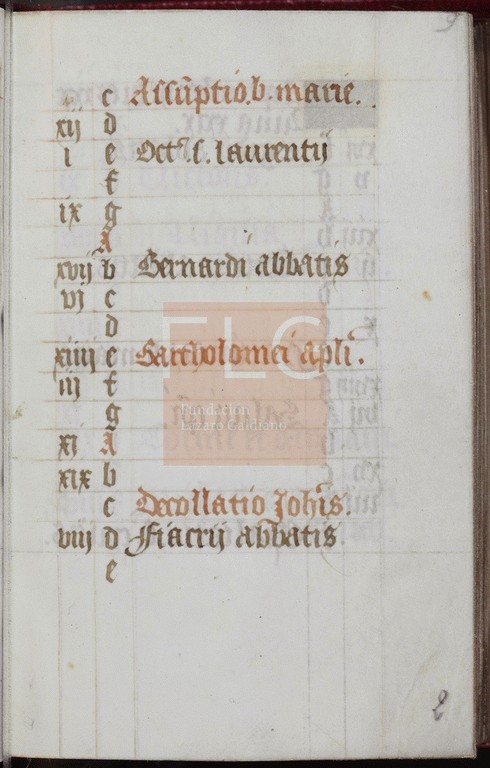 9
c Assũptio.b. marie.
xij d
i e Octᵃ. s. laurentij
f
ix g
A
xvij b Bernardi abbatis
vi c
d
xiiii e Bartholomei apli.
iii f
g
xi A
xix b
c Decollatio Johis.
viij d Fiacrij abbatis
e
FLG
Fundación
Lázaro Galdiano
2